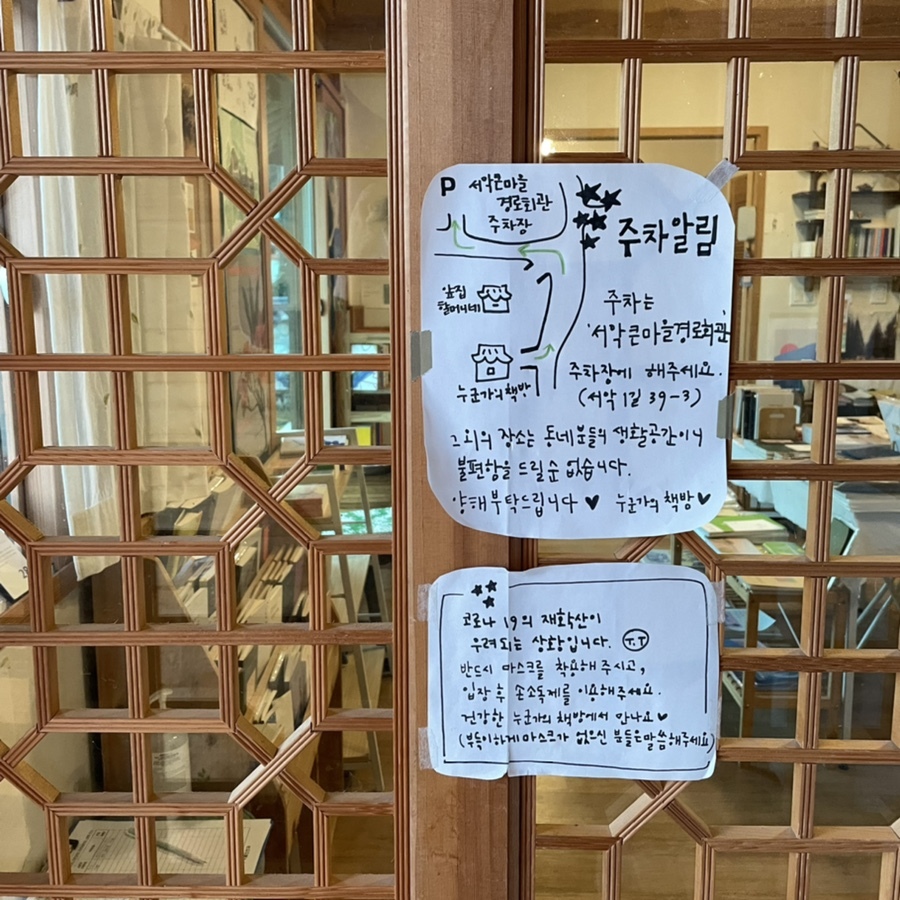 P 서악큰마을
경로회관
주차장
주차알림
옆집
할머니네
누군가의 책방
주차는
'서악큰마을경로회관'
주차장에 해주세요.
(서악1길 39-3)
그 외의 장소는 동네분들의 생활공간이니
불편함을 드릴 순 없습니다.
양해부탁드립니다 ♥ 누군가의 책방 ♥
코로나 19의 재확산이
우려되는 상황입니다. T.T
반드시 마스크를 착용해 주시고,
입장 후 손소독제를 이용해주세요.
건강한 누군가의 책방에서 만나요 ♥
(부득이하게 마스크가 없으신 분들은 말씀해주세요)